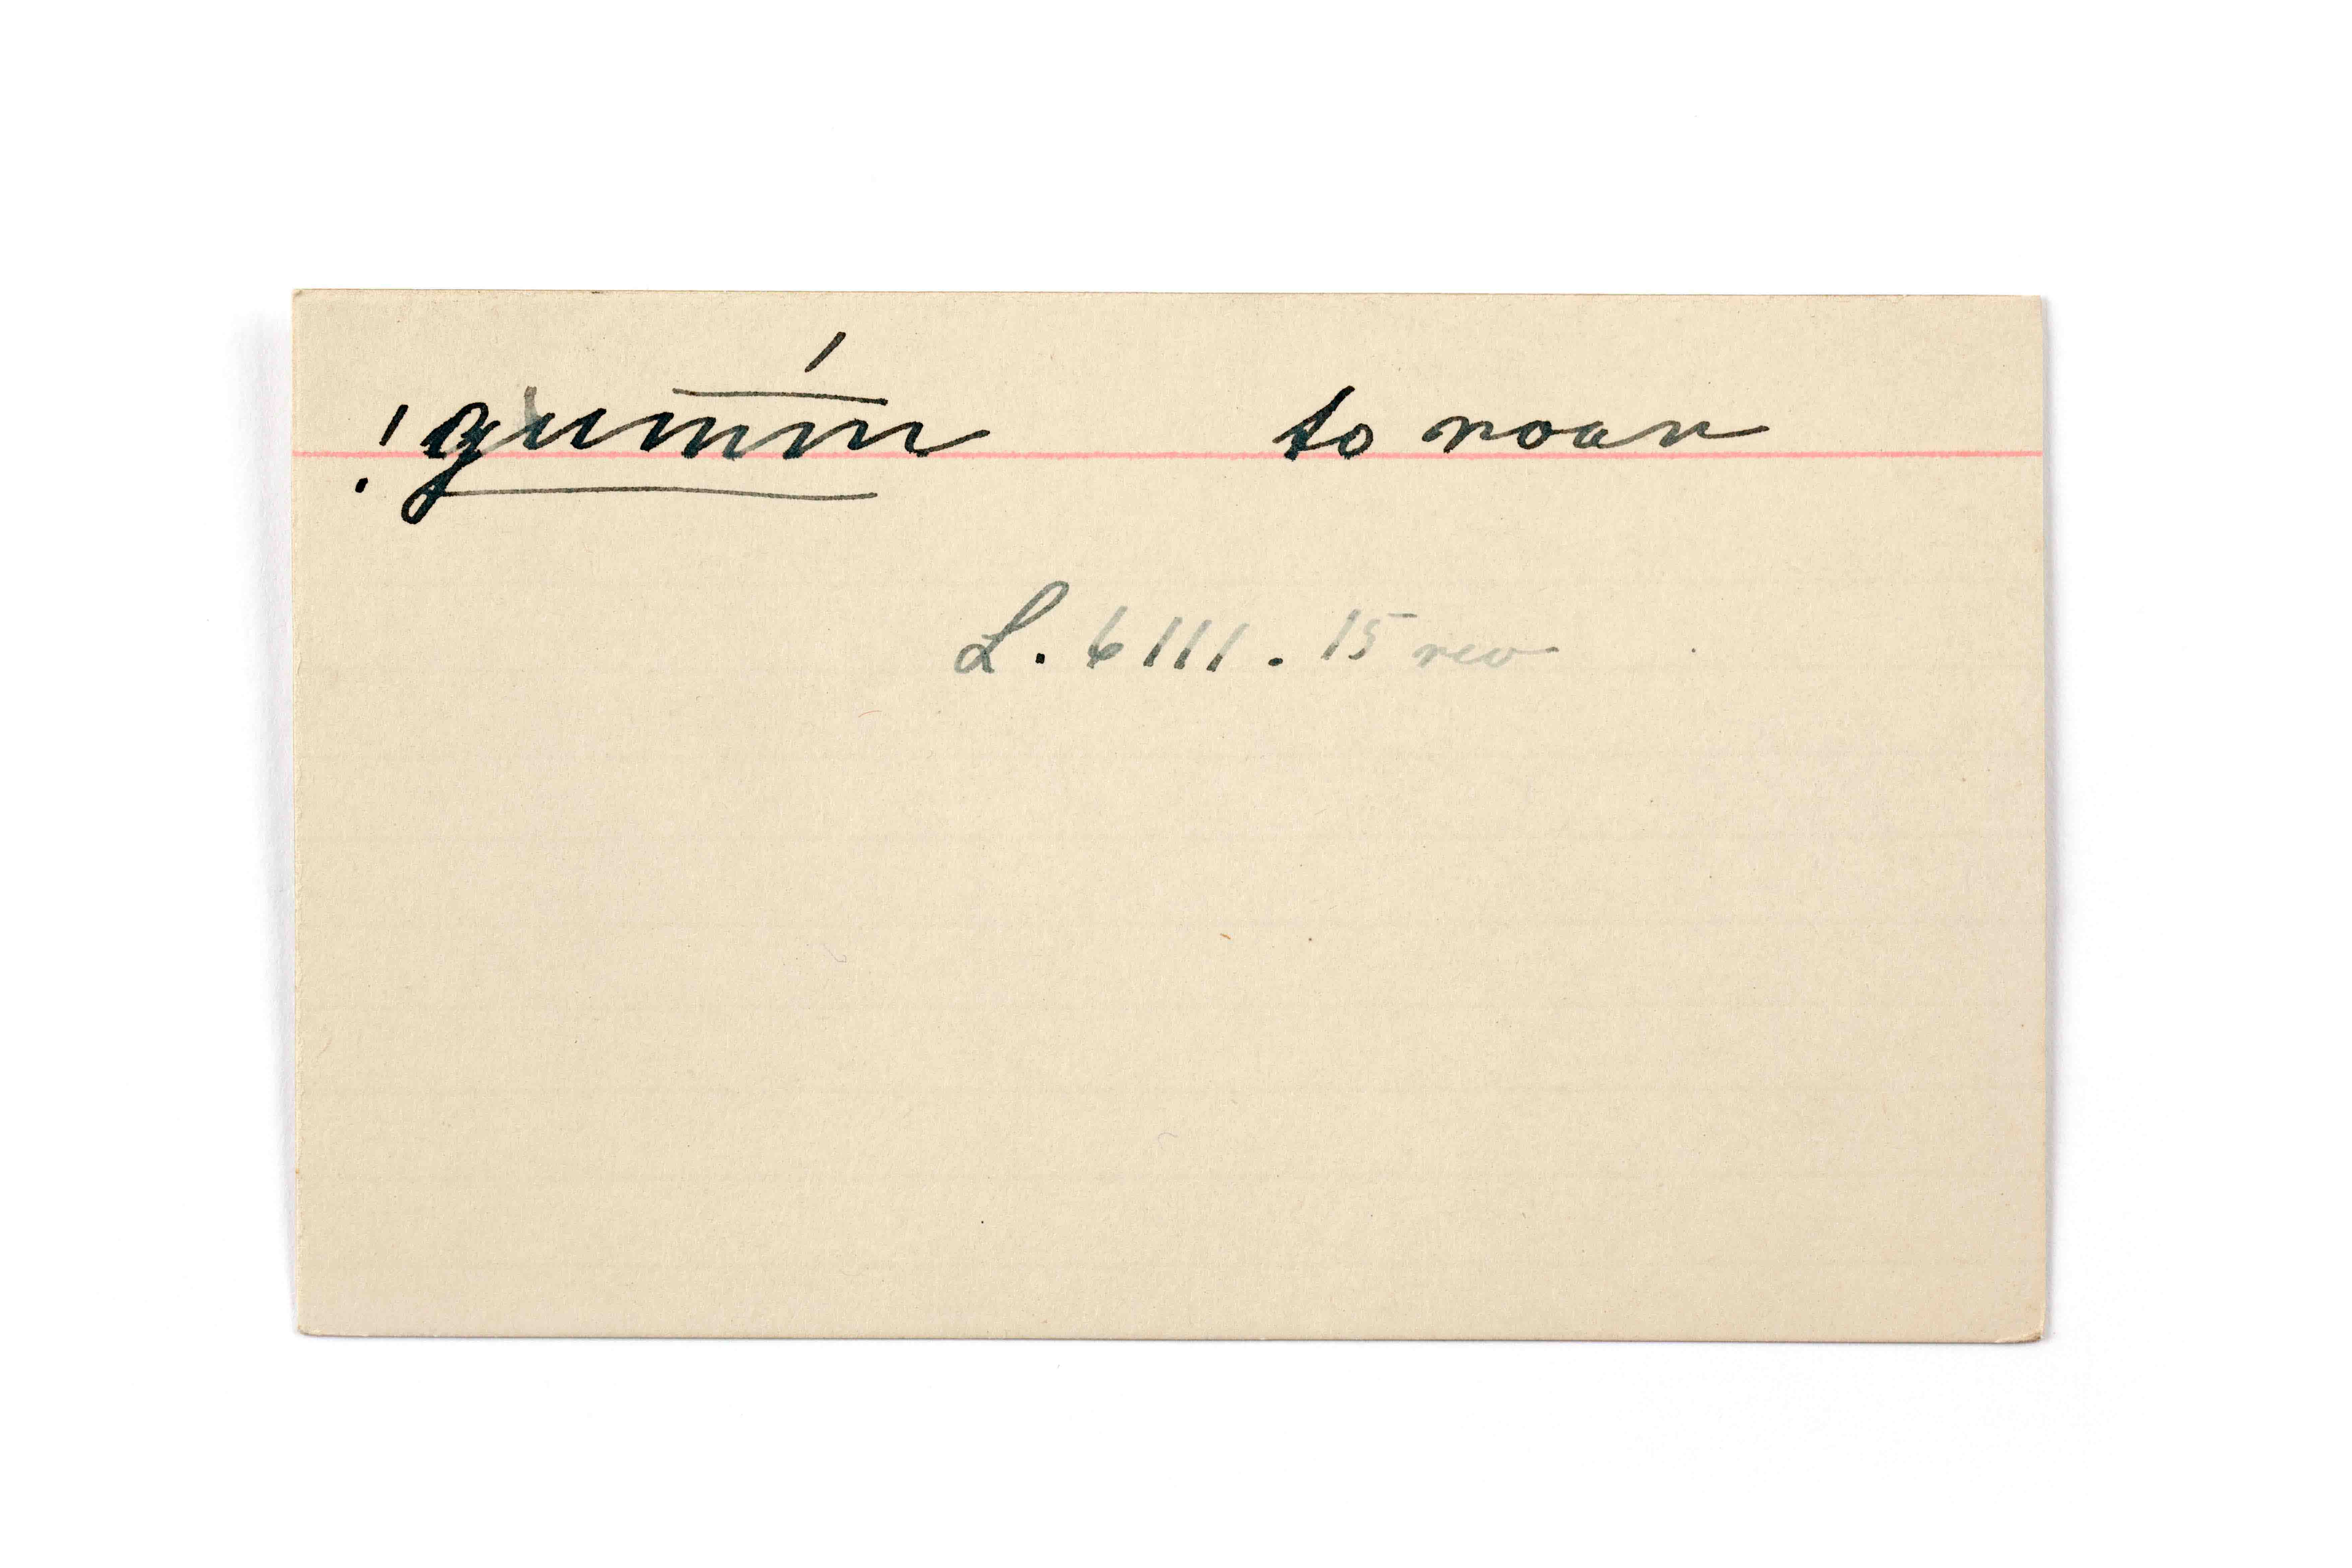 !gum̅ḿ to roar
L. 6111. 15 rev